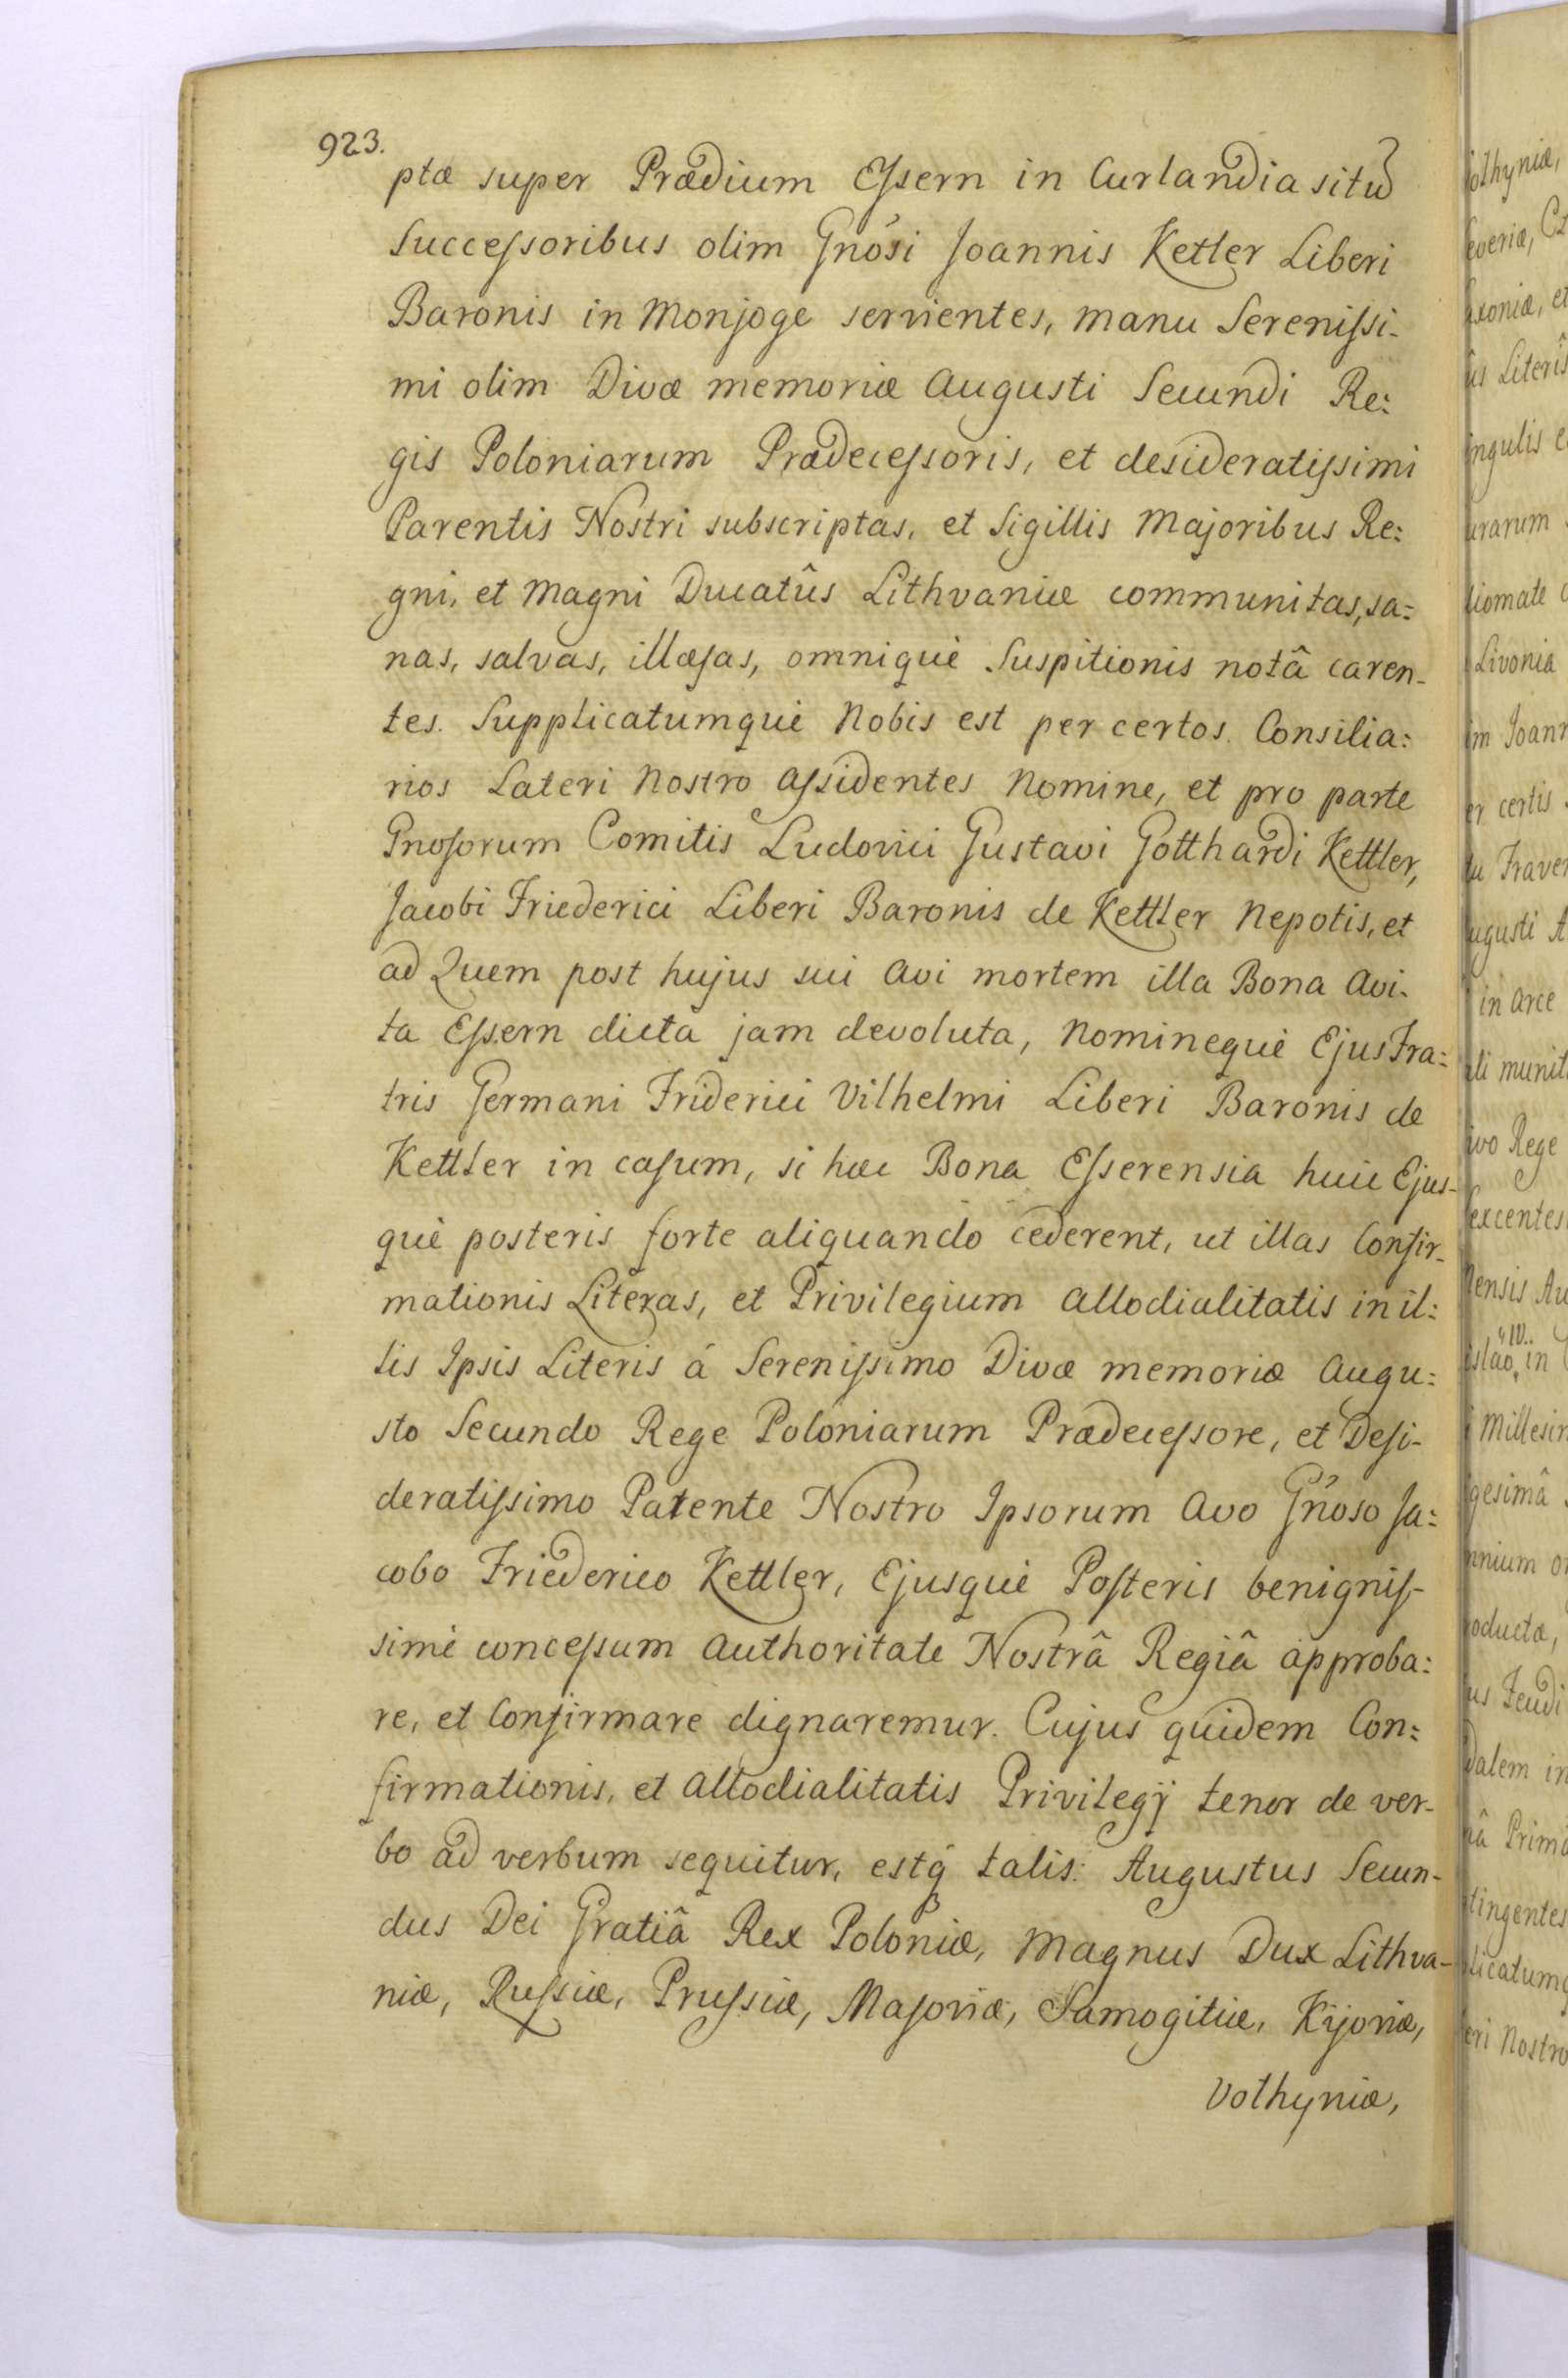 923.
ptæ super Prædium Eſsern in Curlandia sitũ
Succeſsoribus olim Gnosi Joannis Ketler Liberi
Baronis in Monjoge servientes, manu Sereniſsi-
mi olim Divæ memoriæ Augusti Secundi Re:
gis Poloniarum Prædeceſsoris, et desideratiſsimi
Parentis Nostri subscriptas, et Sigillis Majoribus Re:
gni, et Magni Ducatûs Lithvaniæ communitas, sa=
nas, salvas, illæſas, omniquè Suspitionis notâ caren-
tes. Supplicatumquè Nobis est per certos Consilia:
rios Lateri Nostro Aſsidentes Nomine, et pro parte
Gnoſorum Comitis Ludovici Gustavi Gotthardi Kettler,
Jacobi Friederici Liberi Baronis de Kettler Nepotis, et
ad Quem post hujus sui Avi mortem illa Bona Avi-
ta Eſsern dicta jam devoluta, Nominequè Ejus Fra=
tris Germani Friderici Vilhelmi Liberi Baronis de
Kettler in caſum, si hæc Bona Eſserensia huic Ejus-
què posteris forte aliquando cederent, ut illas Confir-
mationis Literas, et Privilegium Allodialitatis in il:
lis Ipsis Literis á Sereniſsimo Divæ memoriæ Augu:
sto Secundo Rege Poloniarum Prædeceſsore, et Deſi-
deratiſsimo Patente Nostro Ipsorum Avo Gnoso Ja=
cobo Friederico Kettler, Ejusquè Poſteris benigniſ-
simè conceſsum Authoritate Nostrâ Regiâ approba:
re, et Confirmare dignaremur. Cujus quidem Con=
firmationis, et Allodialitatis Privilegÿ tenor de ver-
bo ad verbum sequitur, estq́ talis: Augustus Secun-
dus Dei Gratiâ Rex Poloniæ, Magnus Dux Lithva-
niæ, Ruſsiæ, Pruſsiæ, Maſoviæ, Samogitiæ, Kijoviæ,
Volhyniæ,